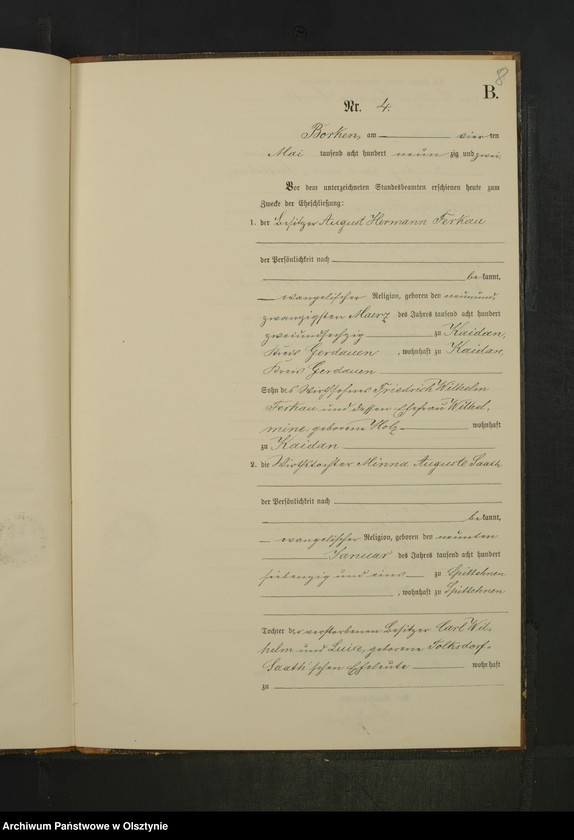 8
B.
Nr. 4.
Borken, am vierten
Mai tausend acht hundert neunzig und zwei,
Vor dem unterzeichneten Standesbeamten erschienen heute zum
Zwecke der Eheschließung:
1. der Besitzer August Hermann Ferkau
der Persönlichkeit nach
bekannt,
evangelischer Religion, geboren den neunund
zwanzigsten Maerz des Jahres tausend acht hundert
zweiundsechzig zu Kaidan,
Kreis Gerdauen, wohnhaft zu Kaidan,
Kreis Gerdauen
Sohn des Friedrich Wilhelm
Ferkau und dessen Ehefrau Wilhel,
mine, geborene Holz wohnhaft
zu Kaidan
2. die Wirthstochter Minna Auguste Saath
der Persönlichkeit nach
bekannt,
evangelischer Religion, geboren den neunten
Januar des Jahres tausend acht hundert
siebenzig und eins zu Spittehnen
, wohnhaft zu Spittehnen
Tochter der verstorbenen Besitzer Carl Wil-
helm und Luise, geborene Tolksdorf-
Saath'schen Eheleute wohnhaft
zu
Archiwum Państwowe w Olsztynie